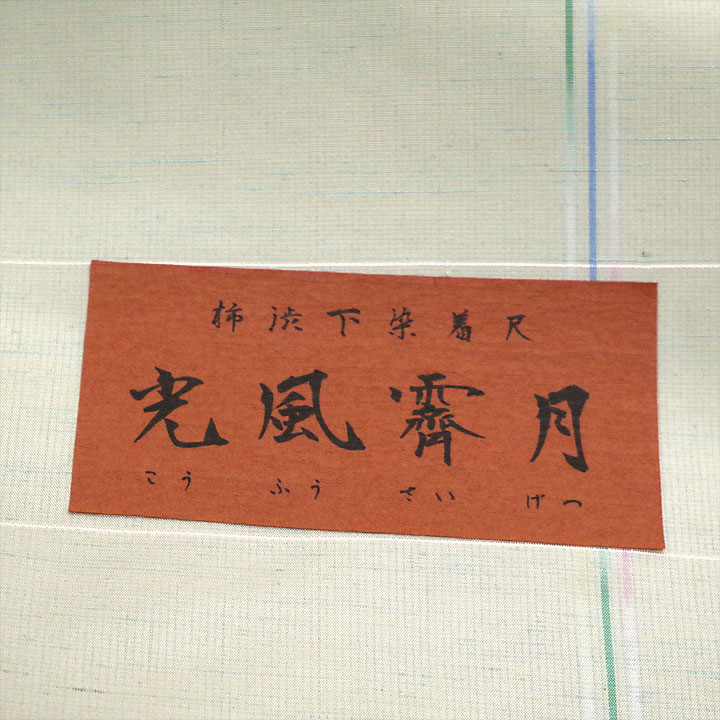 柿渋下染着尺
光風霽月
こう ふう さい げつ